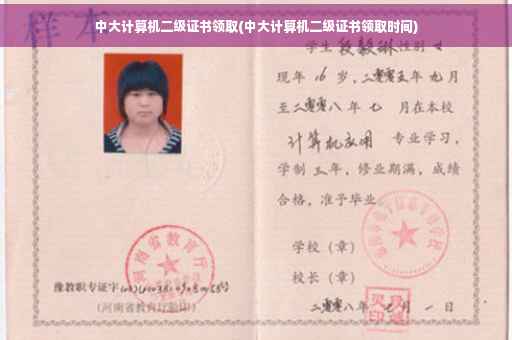 中大计算机二级证书领取(中大计算机二级证书领取时间)
样本
学生段毅琳性别女
现年16岁，二零零五年九月
至二零零八年七月在本校
计算机应用 专业学习，
学制三年，修业期满，成绩
合格，准予毕业。
学校（章）
校长（章）
二零零八年 月一日
河南省教育厅
豫教职专证字
(河南省教育厅验印)